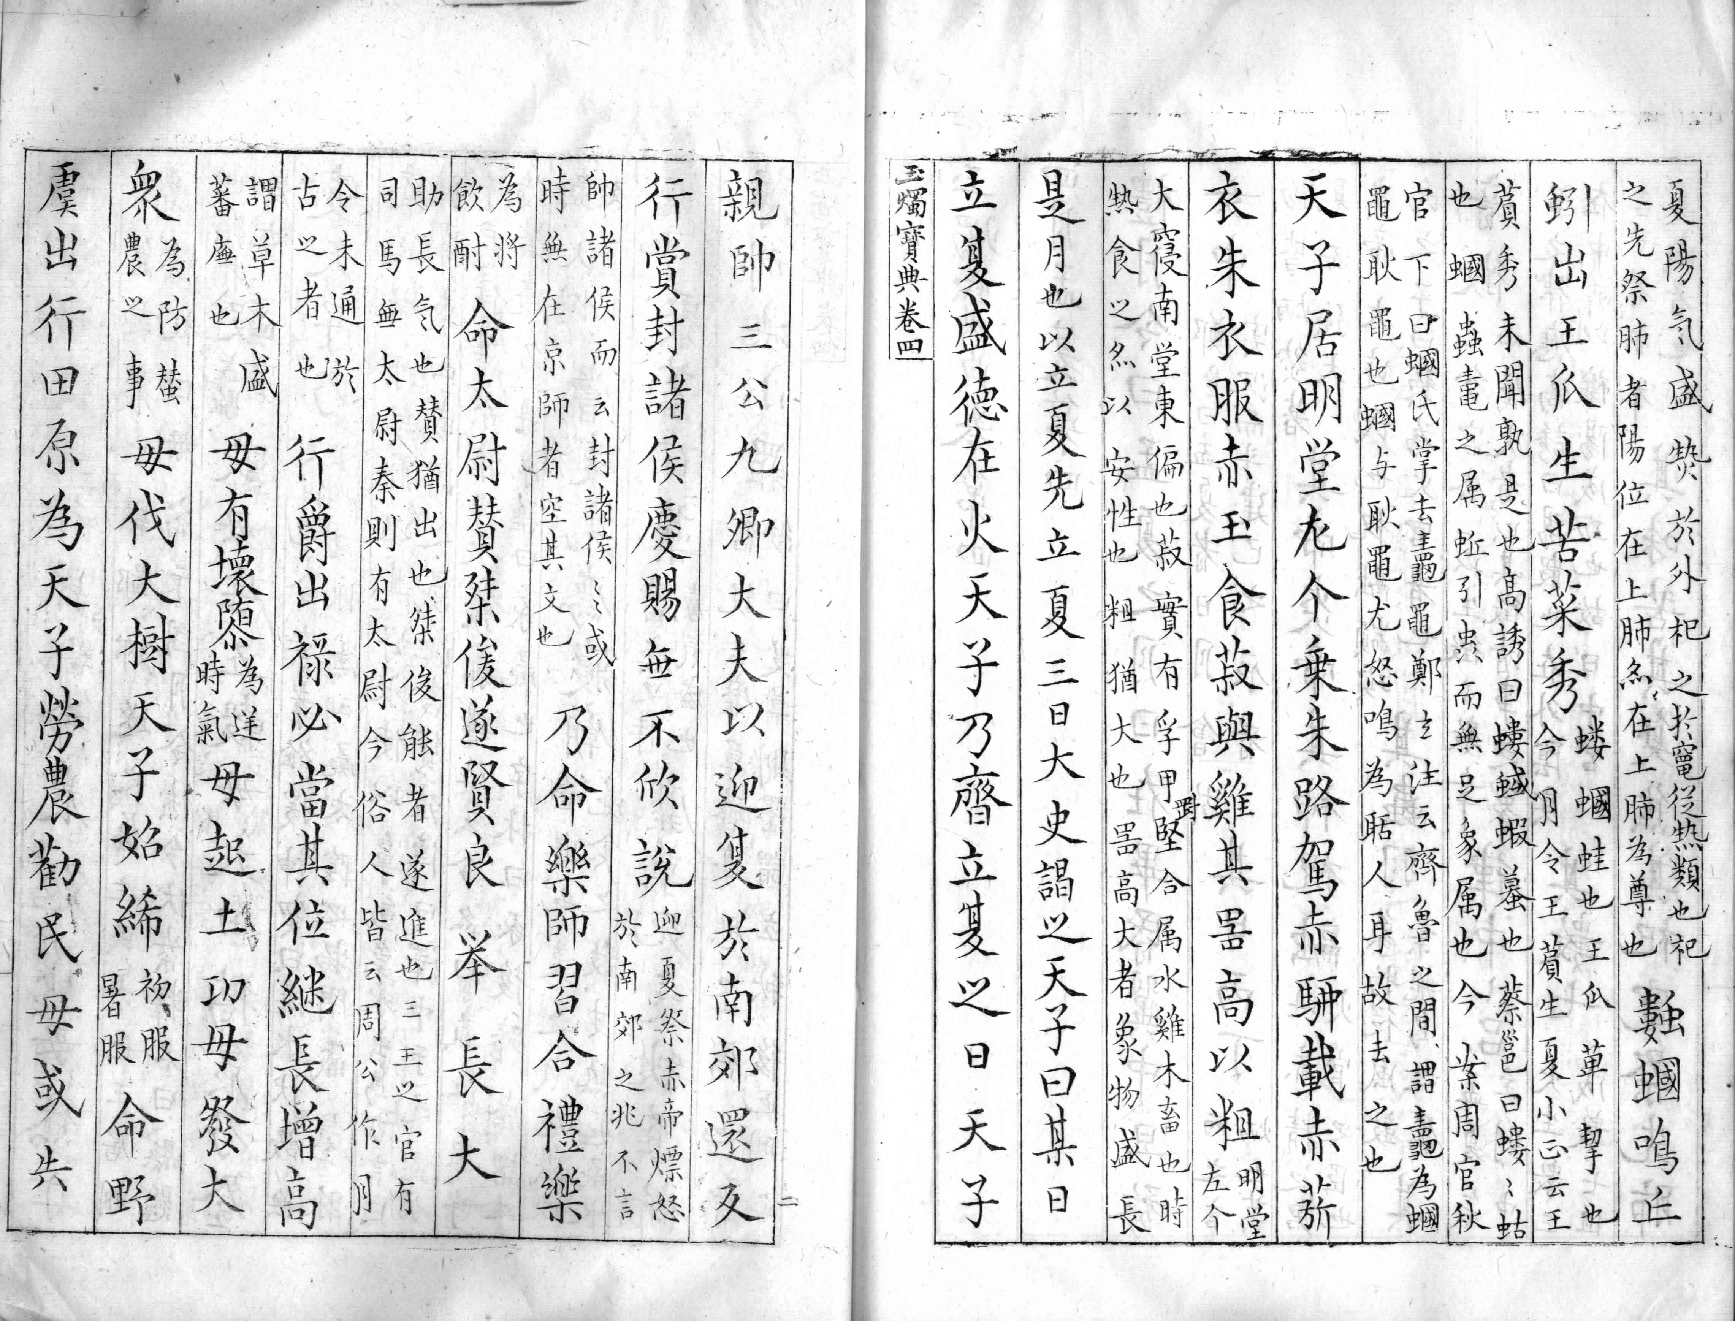 夏陽氣盛𤍠於外祀之於竈從熱類也祀
之先祭肺者陽位在上肺亦在上肺為尊也
螻蟈鳴丘
蚓出王瓜生苦菜秀
螻蟈蛙也王瓜萆挈也
今月令王萯生夏小正云王
萯秀未聞孰是也高誘曰螻蟈蝦蟇也蔡邕曰螻〻蛄
也蟈蟲鼃之属蚯引虫而無足象属也今案周官秋
官下曰蟈氏掌去鼃黽鄭玄注云齊魯之間謂鼃為蟈
黽耿黽也蟈与耿黽尤怒鳴為聒人耳故去之也
天子居明堂左个乗朱路駕赤騂載赤旂
衣朱衣服赤玉食菽與雞其噐高以粗
明堂
左个
大寝南堂東偏也菽實有孚甲堅合属水雞木畜也時
熱食之亦以安性也粗猶大也噐高大者象物盛長
是月也以立夏先立夏三日大史謁之天子曰某日
立夏盛德在火天子乃齊立夏之日天子
玉燭寶典卷四
親帥三公九卿大夫以迎夏於南郊還反
行賞封諸侯慶賜無不欣説
迎夏祭赤帝熛怒
於南郊之兆不言
帥諸侯而云封諸侯〻或
時無在京師者空其文也
乃命樂師習合禮樂
為將
飲酎
命太尉賛桀俊遂賢良舉長大
助長氣也賛猶出也桀俊能者遂進也三王之官有
司馬無太尉秦則有太尉今俗人皆云周公作月
令未通於
古之者也
行爵出禄必當其位継長增高
謂草木盛
蕃廡也
毋有壞隳
為逆
時氣
毋起土功毋發大
衆
為防蠶
農之事
毋伐大樹天子始絺
初服
暑服
命野
虞出行田原為天子勞農勸民毋或失
二